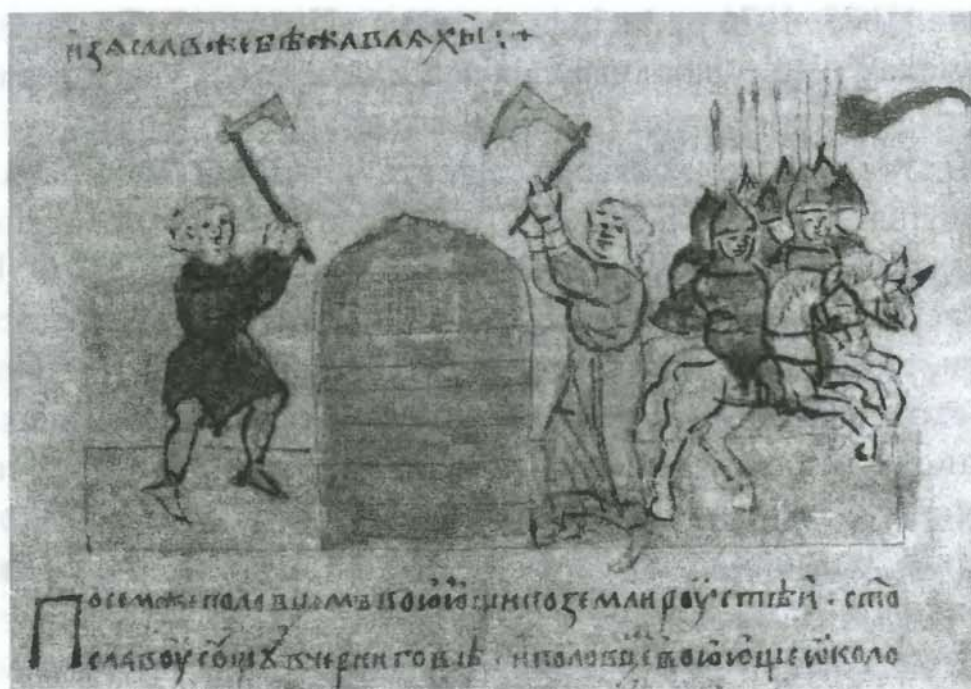 изѧславжебѣжавлѧхы:+
Посемжеполовцемъвоюющипоземлироустѣи·сто
славоусощꙋвчерниговѣ·иполовцевоюющиѿколо